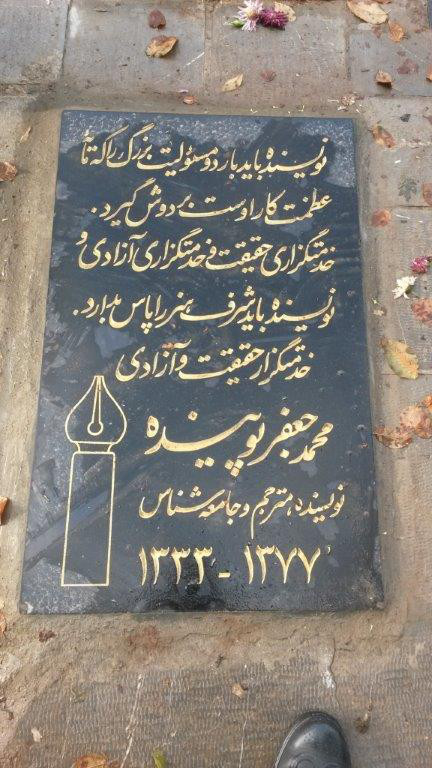 نویسنده باید بار دو مسئولیت بزرگ را که تأ
عظمت کار اوست بر دوش گیرد.
خدمتگزاری حقیقت و خدمتگزاری آزادی و
نویسنده باید شرف هنر را پاس بدارد.
خدمتگزار حقیقت و آزادی
محمد جعفر پوینده
نویسنده، مترجم و جامعه شناس
۱۳۳۳ - ۱۳۷۷